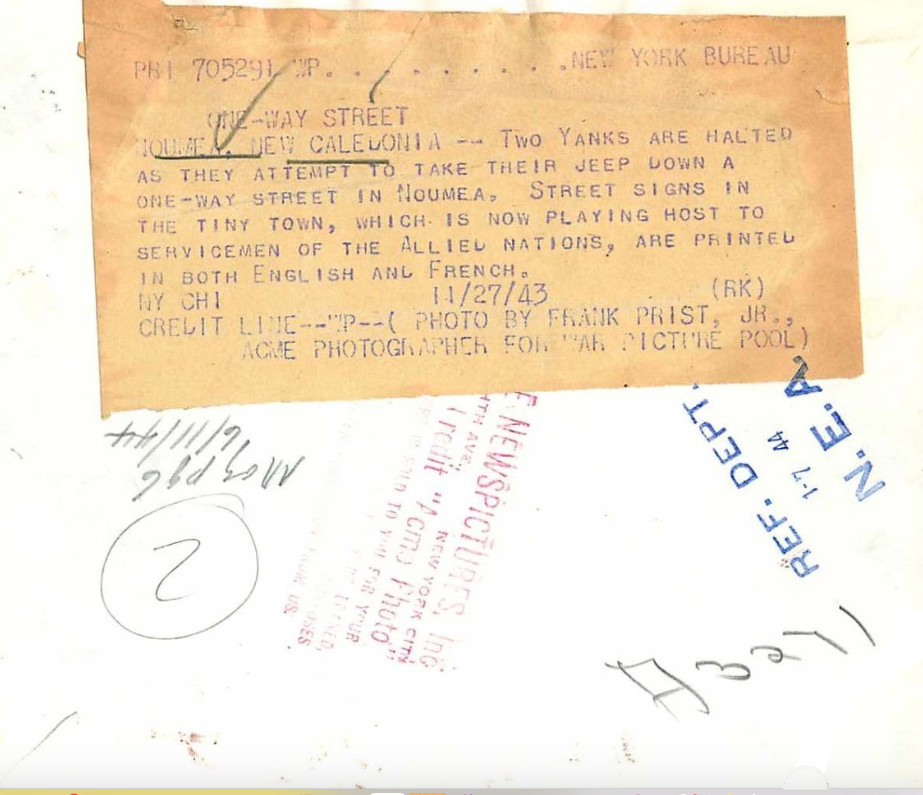 PRI 705291 WP. . . . . . . . . .NEW YORK BUREAU
ONE-WAY STREET
NOUMEA, NEW CALEDONIA -- TWO YANKS ARE HALTED
AS THEY ATTEMPT TO TAKE THEIR JEEP DOWN A
ONE-WAY STREET IN NOUMEA. STREET SIGNS IN
THE TINY TOWN, WHICH IS NOW PLAYING HOST TO
SERVICEMEN OF THE ALLIED NATIONS, ARE PRINTED
IN BOTH ENGLISH AND FRENCH.
NY CHI 11/27/43 (RK)
CREDIT LINE--WP--( PHOTO BY FRANK PRIST, JR.,
ACME PHOTOGRAPHER FOR WAR PICTURE POOL)
REF. DEPT.
1-7 44
N. E. A.
E NEWSPICTURES, Inc
HTH AVE, NEW YORK CITY
Credit "Acme Photo"
TO YOU FOR YOUR
LOANED,
FROM US.
Mag pg 6
6/11/44
2